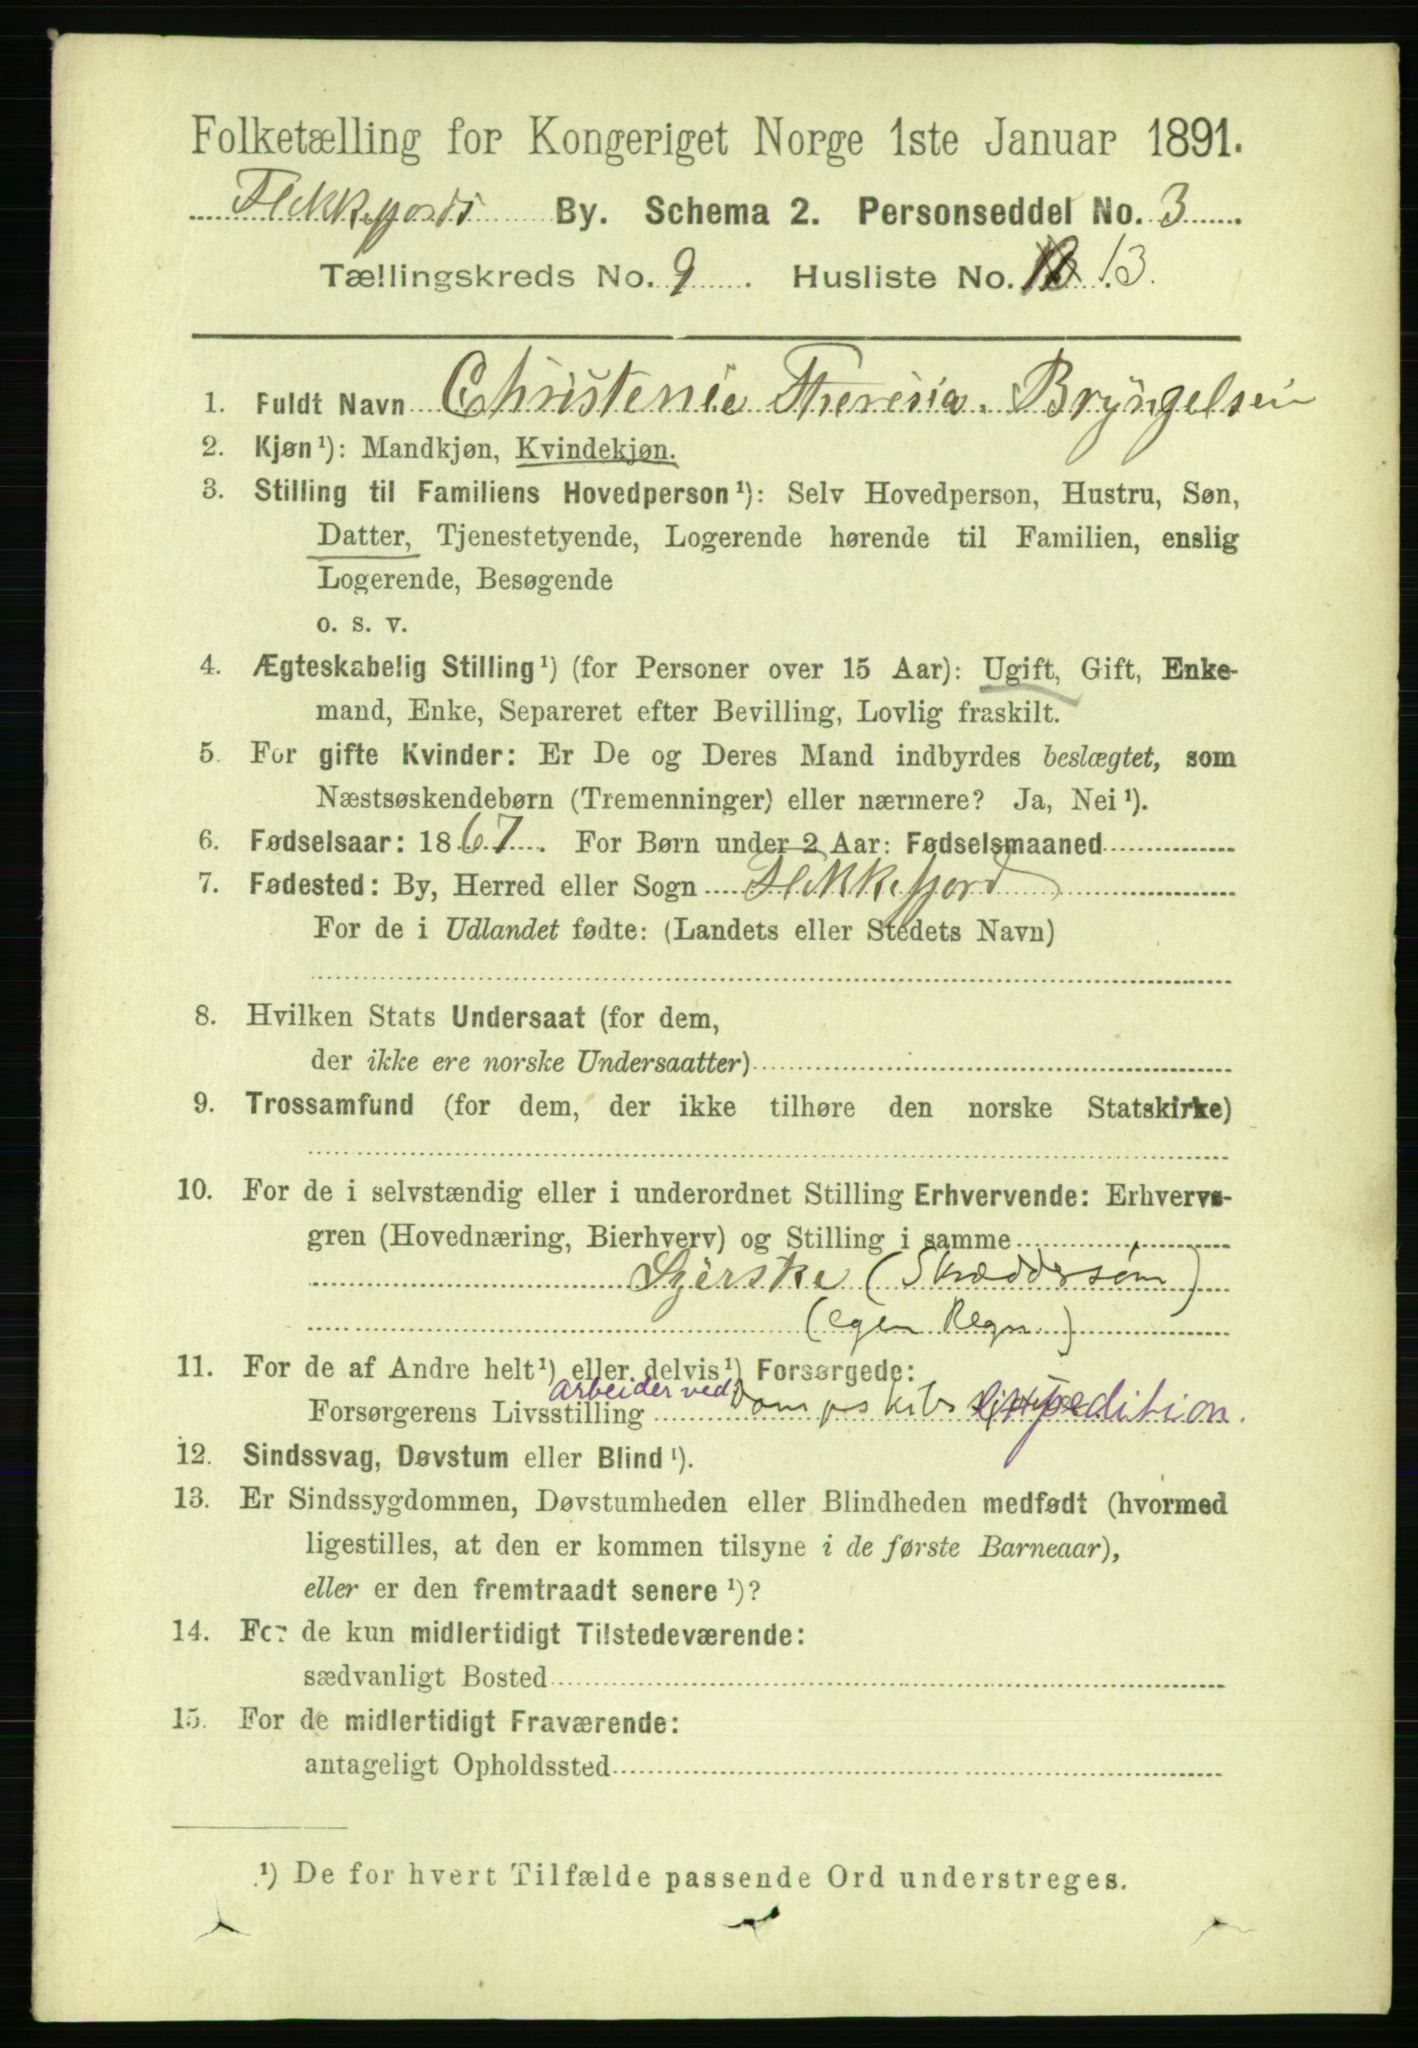 Folketælling for Kongeriget Norge 1ste Januar 1891.
Flekkefjords By. Schema 2. Personseddel No. 3
Tællingskreds No. 9. Husliste No. 13.
1. Fuldt Navn Christenie Theresia Bryngelsen
2. Kjøn¹): Mandkjøn, Kvindekjøn.
3. Stilling til Familiens Hovedperson¹): Selv Hovedperson, Hustru, Søn,
Datter, Tjenestetyende, Logerende hørende til Familien, enslig
Logerende, Besøgende
o. s. v.
4. Ægteskabelig Stilling¹) (for Personer over 15 Aar): Ugift, Gift, Enke-
mand, Enke, Separeret efter Bevilling, Lovlig fraskilt.
5. For gifte Kvinder: Er De og Deres Mand indbyrdes beslægtet, som
Næstsøskendebørn (Tremenninger) eller nærmere? Ja, Nei¹).
6. Fødselsaar: 1867. For Børn under 2 Aar: Fødselsmaaned
7. Fødested: By, Herred eller Sogn Flekkefjord
For de i Udlandet fødte: (Landets eller Stedets Navn)
8. Hvilken Stats Undersaat (for dem,
der ikke ere norske Undersaatter)
9. Trossamfund (for dem, der ikke tilhøre den norske Statskirke)
10. For de i selvstændig eller i underordnet Stilling Erhvervende: Erhvervs-
gren (Hovednæring, Bierhverv) og Stilling i samme
Syerske (Skræddersøm)
(egen Regn.)
11. For de af Andre helt¹) eller delvis¹) Forsørgede:
arbeider ved
Forsørgerens Livsstilling Dampskibs Expedition.
12. Sindssvag, Døvstum eller Blind¹).
13. Er Sindssygdommen, Døvstumheden eller Blindheden medfødt (hvormed
ligestilles, at den er kommen tilsyne i de første Barneaar),
eller er den fremtraadt senere¹)?
14. For de kun midlertidigt Tilstedeværende:
sædvanligt Bosted
15. For de midlertidigt Fraværende:
antageligt Opholdssted
¹) De for hvert Tilfælde passende Ord understreges.